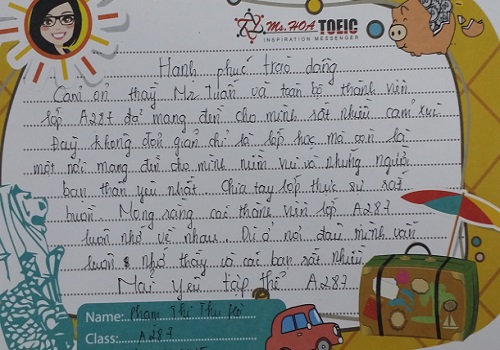 Ms. HOA TOEIC
INSPIRATION MESSENGER
Hạnh phúc trào dâng
Cảm ơn thầy Mr Tuấn và toàn bộ thành viên
lớp A287 đã mang đến cho mình rất nhiều cảm xúc
Đây không đơn giản chỉ là lớp học mà còn là
một nơi mang đến cho mình niềm vui và những người
bạn thân yêu nhất. Chia tay lớp thực sự rất
buồn. Mong rằng các thành viên lớp A287
luôn nhớ về nhau. Dù ở nơi đâu mình vẫn
luôn nhớ thầy và các bạn rất nhiều
Mãi yêu tập thể A287
Name: Phạm Thị Thu Hà
Class: A287